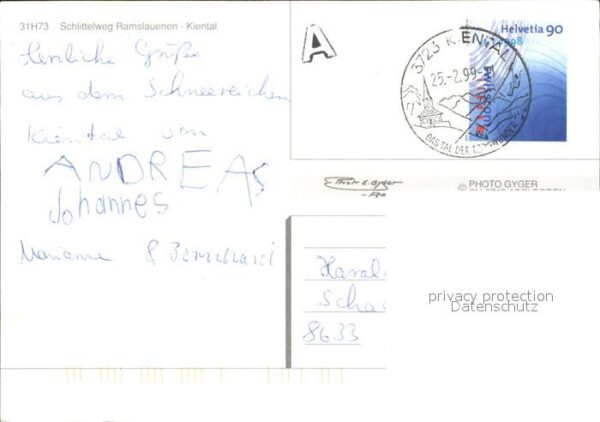 31H73 Schlittelweg Ramslauenen - Kiental
Herzliche Grüße
aus dem Schneereichen
Kiental von
ANDREAS
Johannes
Marianne & Bernhard
A
Helvetia 90
1998
swisscom
3723 KIENTAL
25.-2.99
DAS TAL DER
PHOTO GYGER
Haral
Scha
8633
privacy protection
Datenschutz